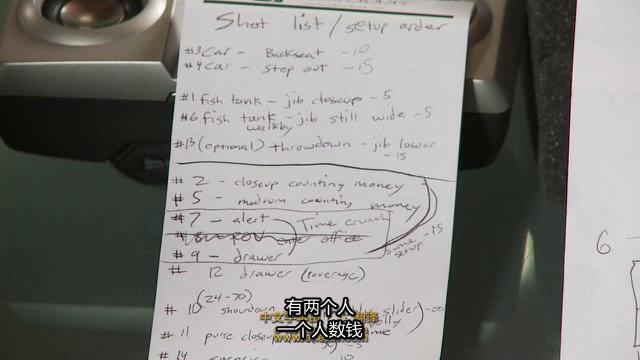 Shot list/setup order
#3 Car - Backseat - 10
#4 Car - Step out - 15
#1 fish tank - jib closeup - 5
#6 fish tank - jib still wide - 5
walkby
#13 (optional) throwdown - jib lower
- 15
#2 - closeup counting money
#5 - medium counting money
#7 - alert Time crunch
enter office
#9 - drawer
same setup - 15
# 12 drawer (coverage)
(24-70)
# 10 showdown slider
# 11 purse closeup - 5
#14 10
6
有两个人
一个人数钱